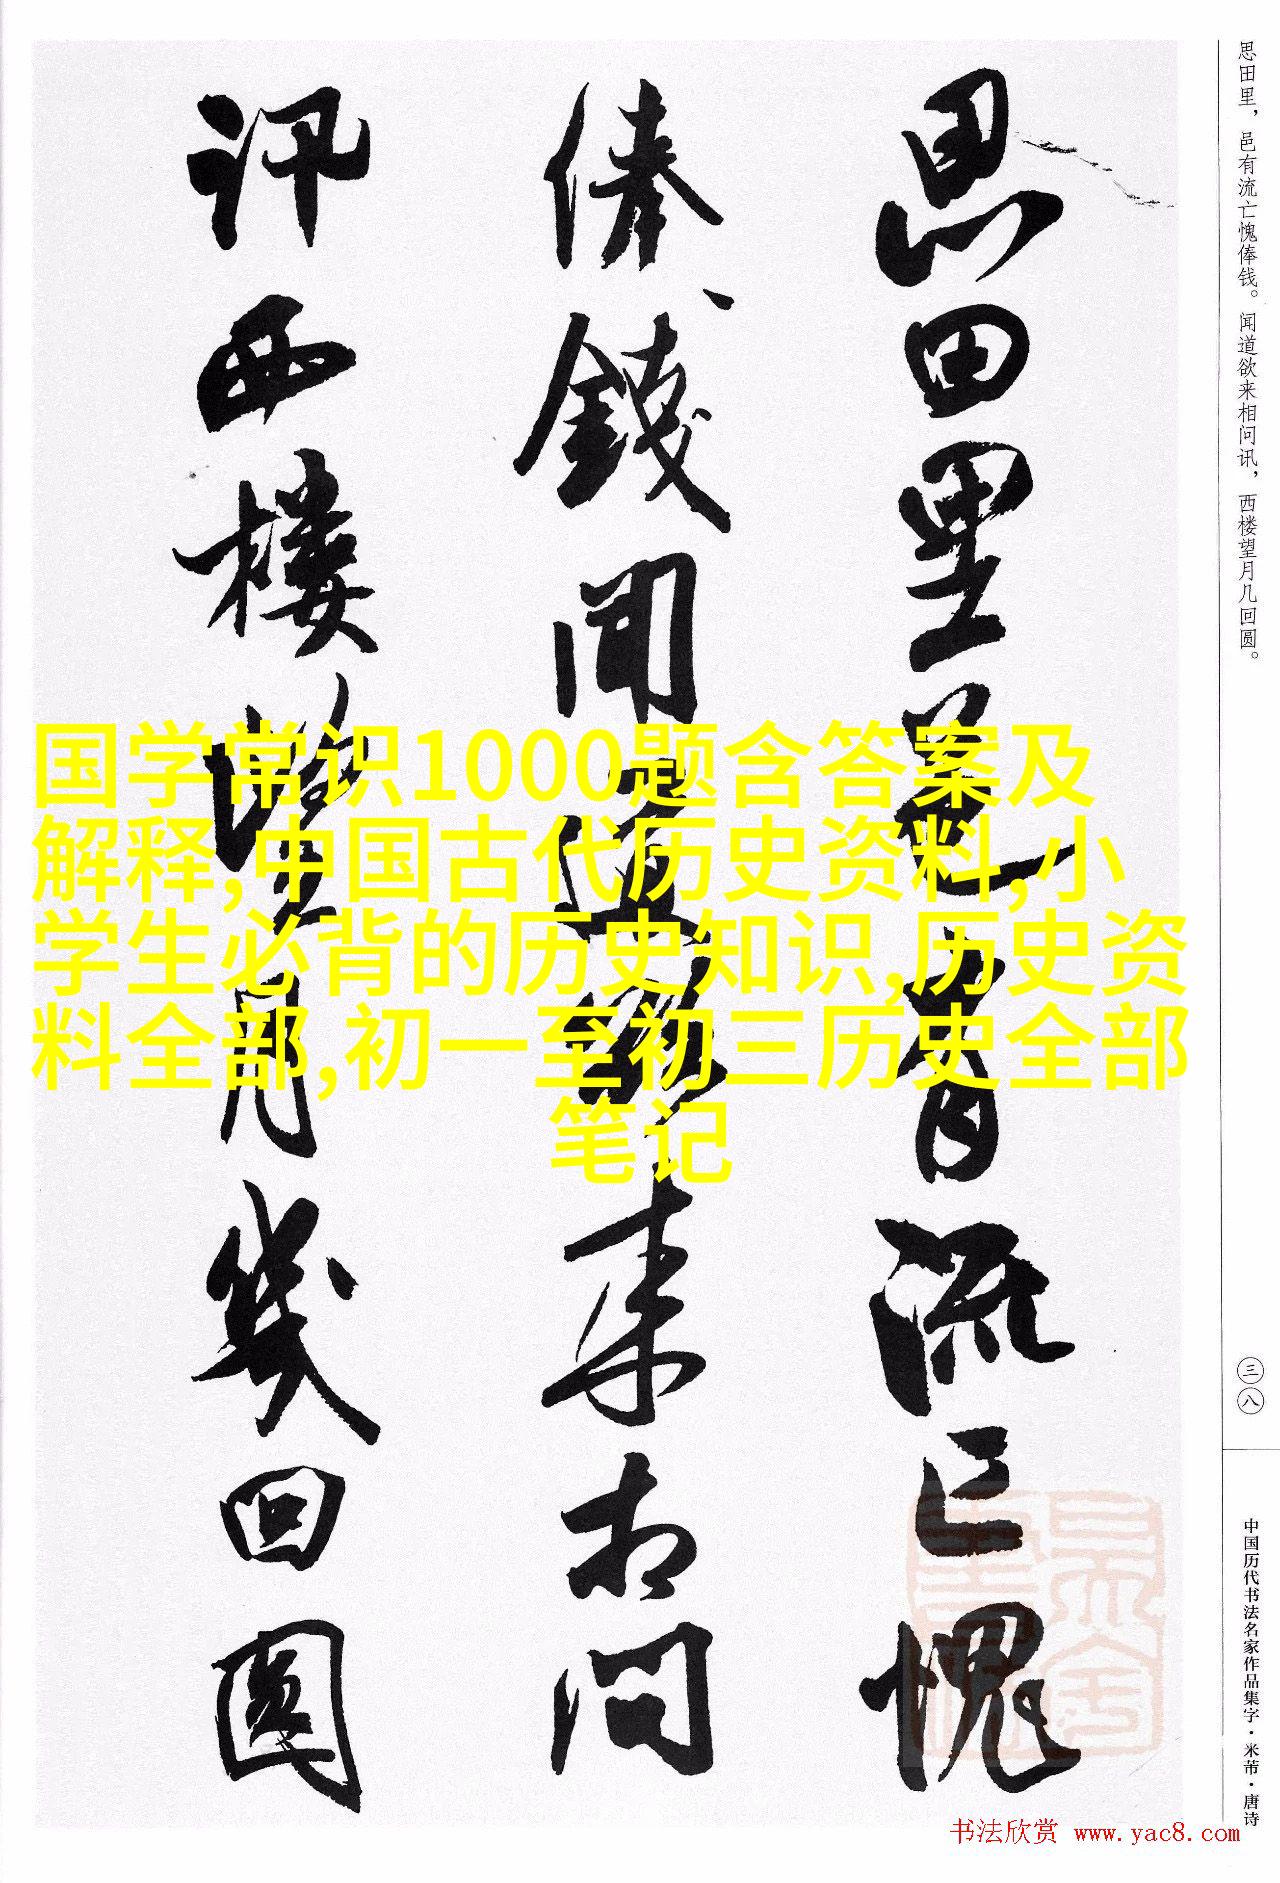 思田里，邑有流亡愧俸钱。闻道欲来相问讯，西楼望月几回圆。
三八
中国历代书法名家作品集字·米芾·唐诗
思田里邑有流亡愧
俸錢聞道欲来相問
訊西樓望月幾回圓
国学常识1000题含答案及
解释,中国古代历史资料,小
学生必背的历史知识,历史资
料全部,初一至初三历史全部
笔记
书法欣赏 www.yac8.com